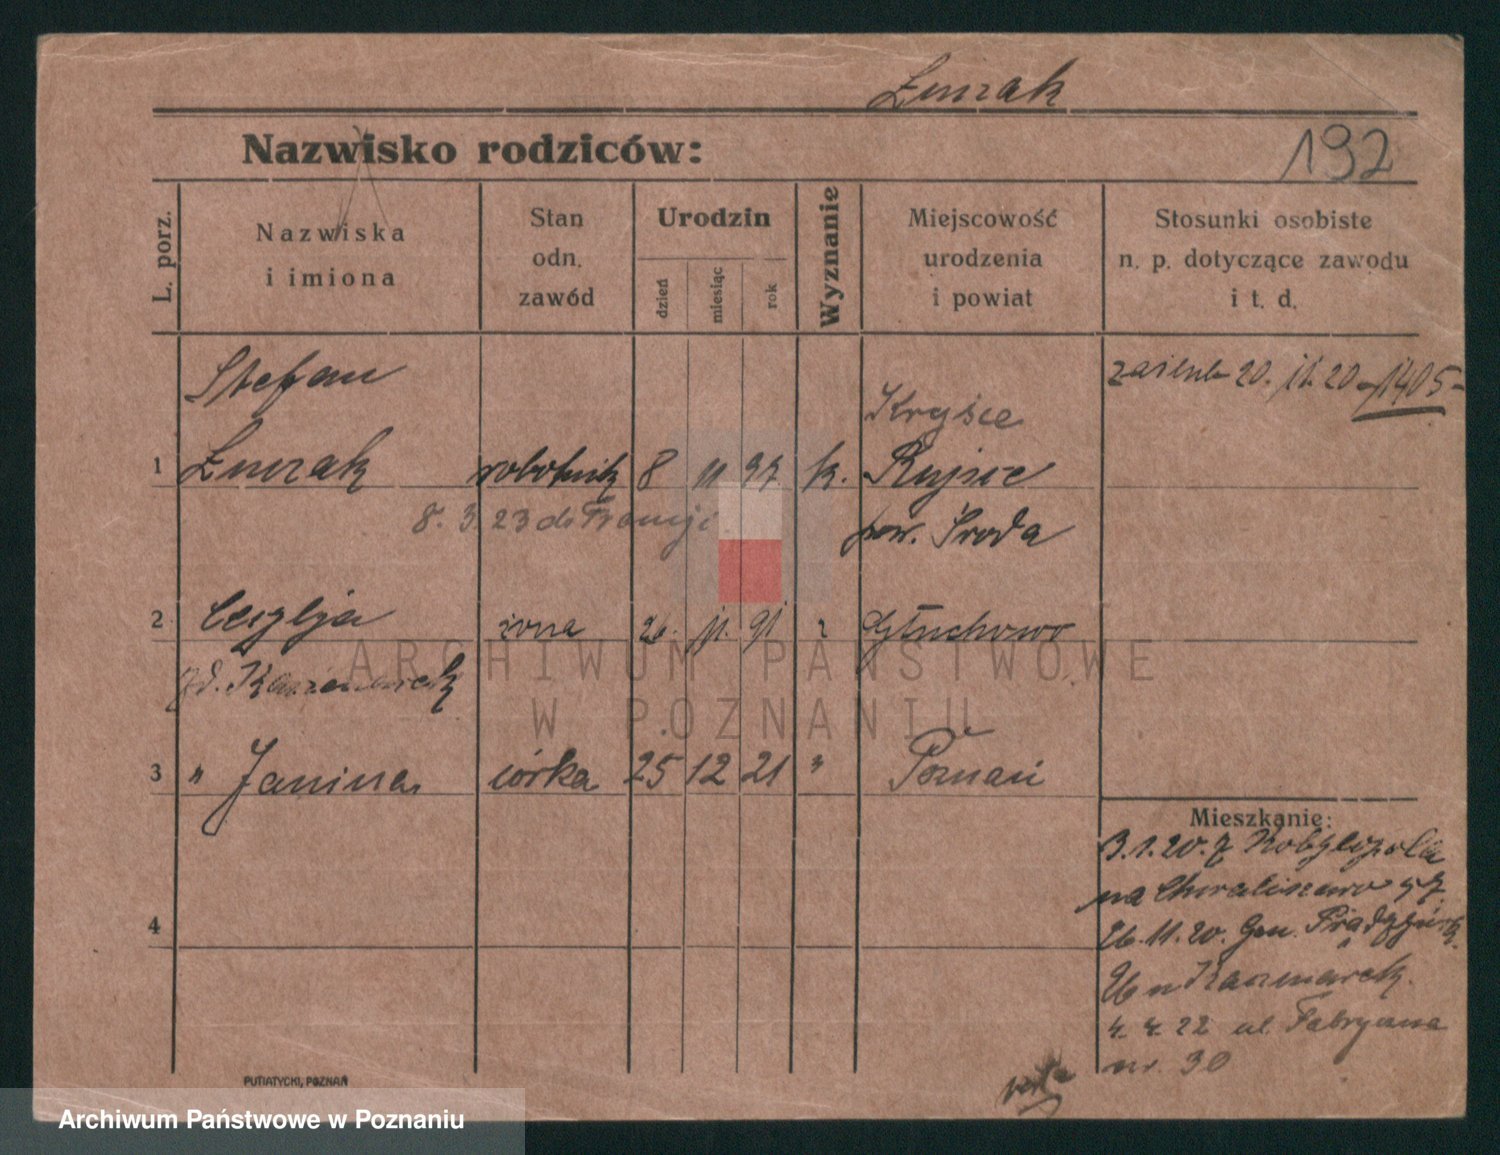 Żurzak
Nazwisko rodziców:
192
L. porz.
Nazwiska
i imiona
Stan
odn.
zawód
Urodzin
dzień
miesiąc
rok
Wyznanie
Miejscowość
urodzenia
i powiat
Stosunki osobiste
n. p. dotyczące zawodu
i t. d.
Stefan
20. 11. 20 - 1405 -
1 robotnik 8 11 97 k.
8. 3. 23 do Francji
pow. Środa
2 żona 26. 11. 91 Głuchowo
3 " Janina córka 25 12 21 " Poznań
Mieszkanie:
3.1.20. z Kobylepola
na
26.11.20. Gen. Prądzyńsk.
26 u Kaczmarek.
4. 4. 22 ul. Fabryczna
nr. 30
4
verte
PUTIATYCKI, POZNAŃ
ARCHIWUM PAŃSTWOWE
W POZNANIU
Archiwum Państwowe w Poznaniu